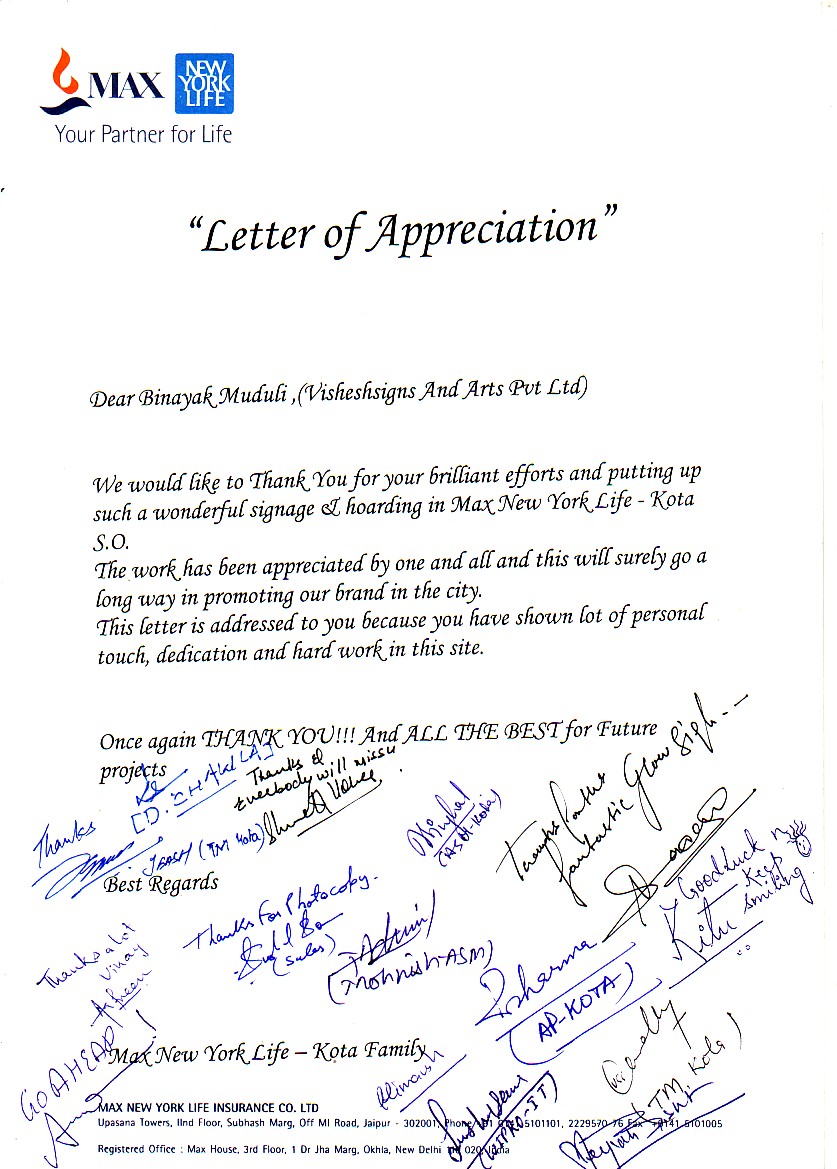 MAX
NEW
YORK
LIFE
Your Partner for Life
“Letter of Appreciation”
Dear Binayak Muduli ,(Visheshsigns And Arts Pvt Ltd)
We would like to Thank You for your brilliant efforts and putting up
such a wonderful signage & hoarding in Max New York Life - Kota
S.O.
The work has been appreciated by one and all and this will surely go a
long way in promoting our brand in the city.
This letter is addressed to you because you have shown lot of personal
touch, dedication and hard work in this site.
Once again THANK YOU!!! And ALL THE BEST for Future
projects
[D. CHAWLA]
Thanks &
Everbody will miss u
Thanks
(TM Kota)
(ASM-Kota)
Thanks for the
fantastic Glow Sign--
Best Regards
Good Luck n
Keep
smiling
Kitu
Thanks For Photocopy.
(Sales)
(Mohnish ASM)
Thanks a lot
Vinay
Sharma
(AP-KOTA)
GO AHEAD!
Max New York Life – Kota Family
Himansh
(TM Kota)
(WIPRO-IT)
MAX NEW YORK LIFE INSURANCE CO. LTD
Upasana Towers, IInd Floor, Subhash Marg, Off MI Road, Jaipur - 302001, Phone 5101101, 2229570-76 Fax +9141-5101005
Registered Office : Max House, 3rd Floor, 1 Dr Jha Marg, Okhla, New Delhi 020